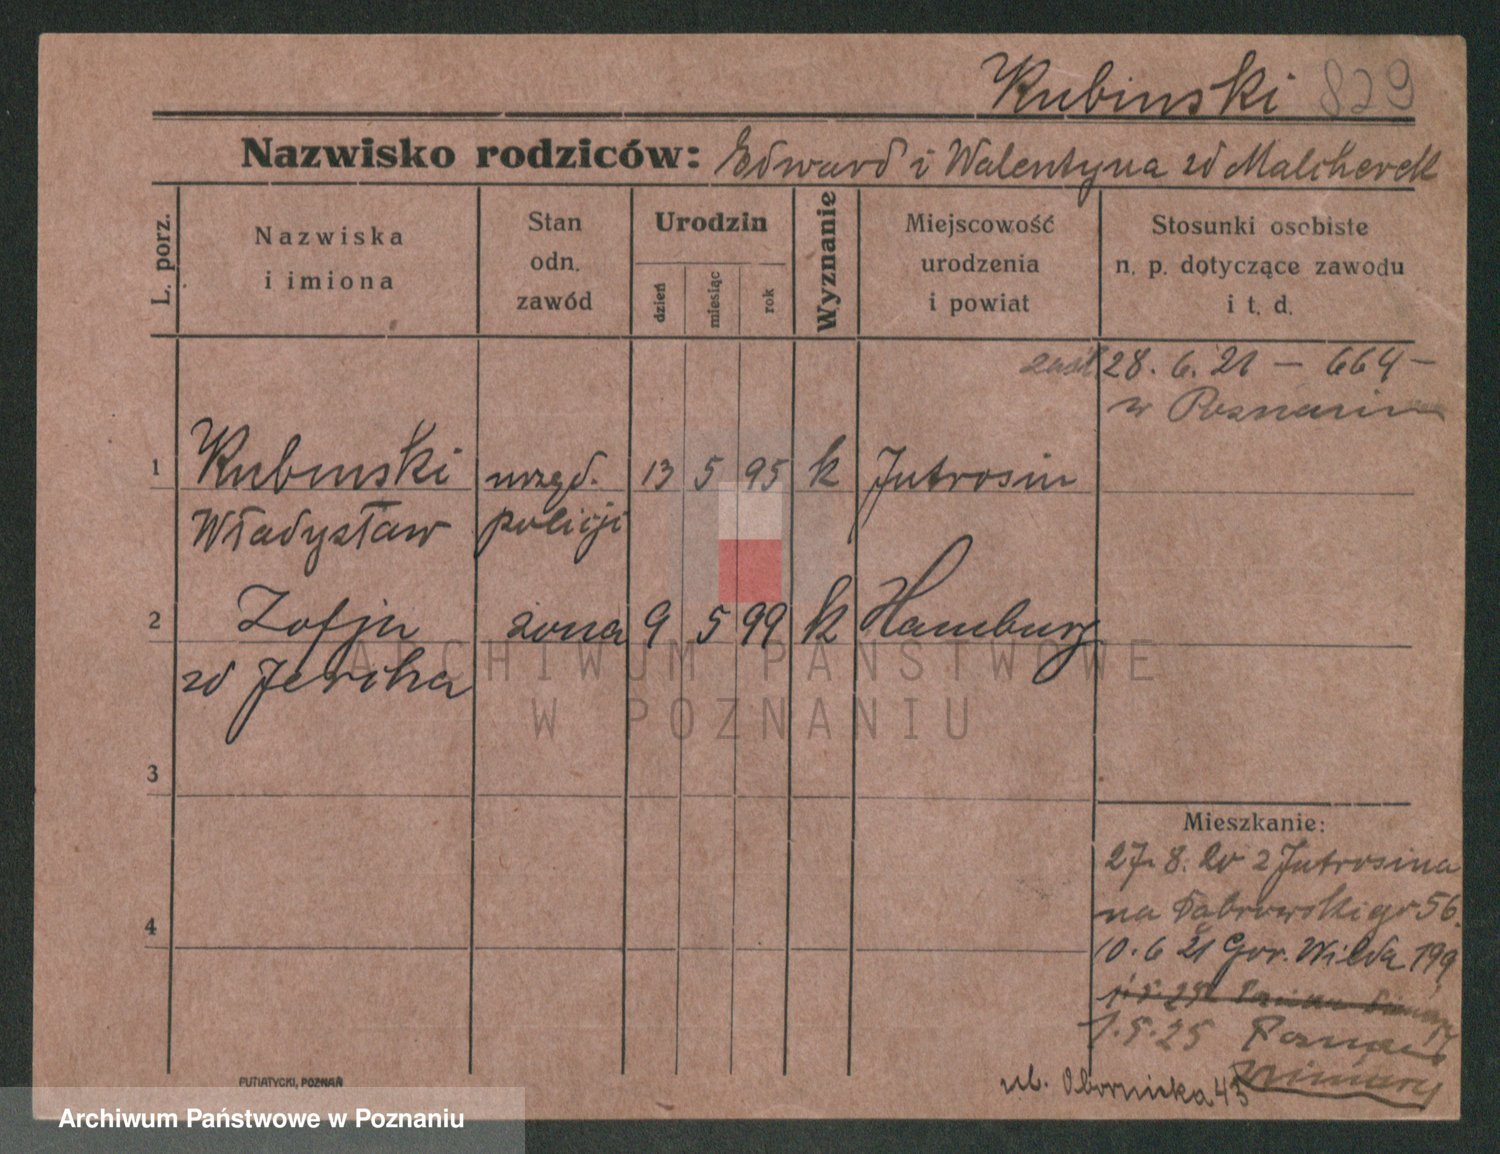 Kubinski 829
Nazwisko rodziców: Edward i Walentyna zd Malcherek
L. porz.
Nazwiska
i imiona
Stan
odn.
zawód
Urodzin
dzień
miesiąc
rok
Wyznanie
Miejscowość
urodzenia
i powiat
Stosunki osobiste
n. p. dotyczące zawodu
i t. d.
28. 6. 21 — 664 —
w Poznaniu
1 Kubinski urzęd. 13 5 95 k Jutrosin
Władysław policji
2 Zofja żona 9 5 99 k Hamburg
zd Jericha
ARCHIWUM PAŃSTWOWE
W POZNANIU
3
Mieszkanie:
27. 8. 20 z Jutrosina
na Dąbrowskiego 56.
4
10. 6 21 Gór. Wilda 199
1. 5. 25 Poznań
Winiary
ul. Obornicka 43
PUTIATYCKI, POZNAŃ
Archiwum Państwowe w Poznaniu